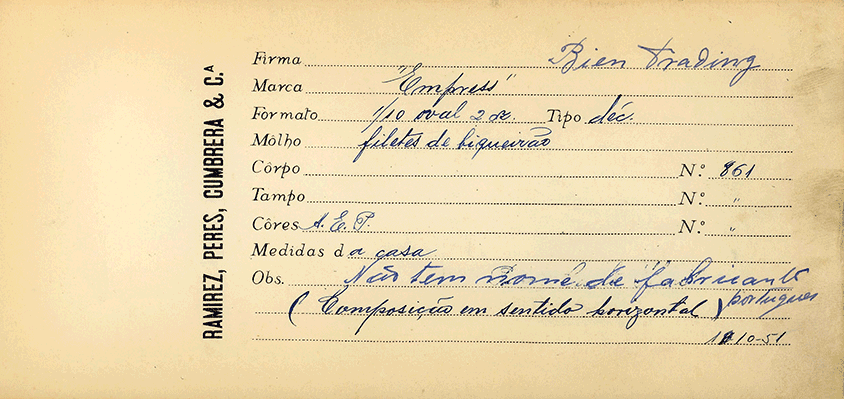 RAMIREZ, PERES, CUMBRERA & C.ᴬ
Firma Bien Trading
Marca "Empress"
Formato 1/10 oval 2 Tipo déc.
Môlho filetes de biqueirão
Côrpo N.º 861
Tampo N.º "
Côres A. E. P. N.º "
Medidas da casa
Obs. Não tem nome de fabricante
(Composição em sentido horizontal) portugues
10-51